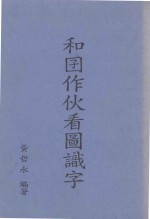 和囝作伙看圖識字
黃哲永 編著